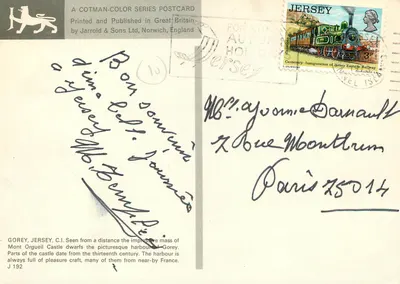 A COTMAN-COLOR SERIES POSTCARD
Printed and Published in Great Britain
by Jarrold & Sons Ltd, Norwich, England
JERSEY
10
Bon souvenir
d'une belle journée
a Jersey
Yvonne
2 Rue
Paris 75014
GOREY, JERSEY, C.I. Seen from a distance the impressive mass of
Mont Orgueil Castle dwarfs the picturesque harbour of Gorey.
Parts of the castle date from the thirteenth century. The harbour is
always full of pleasure craft, many of them from near-by France.
J 192